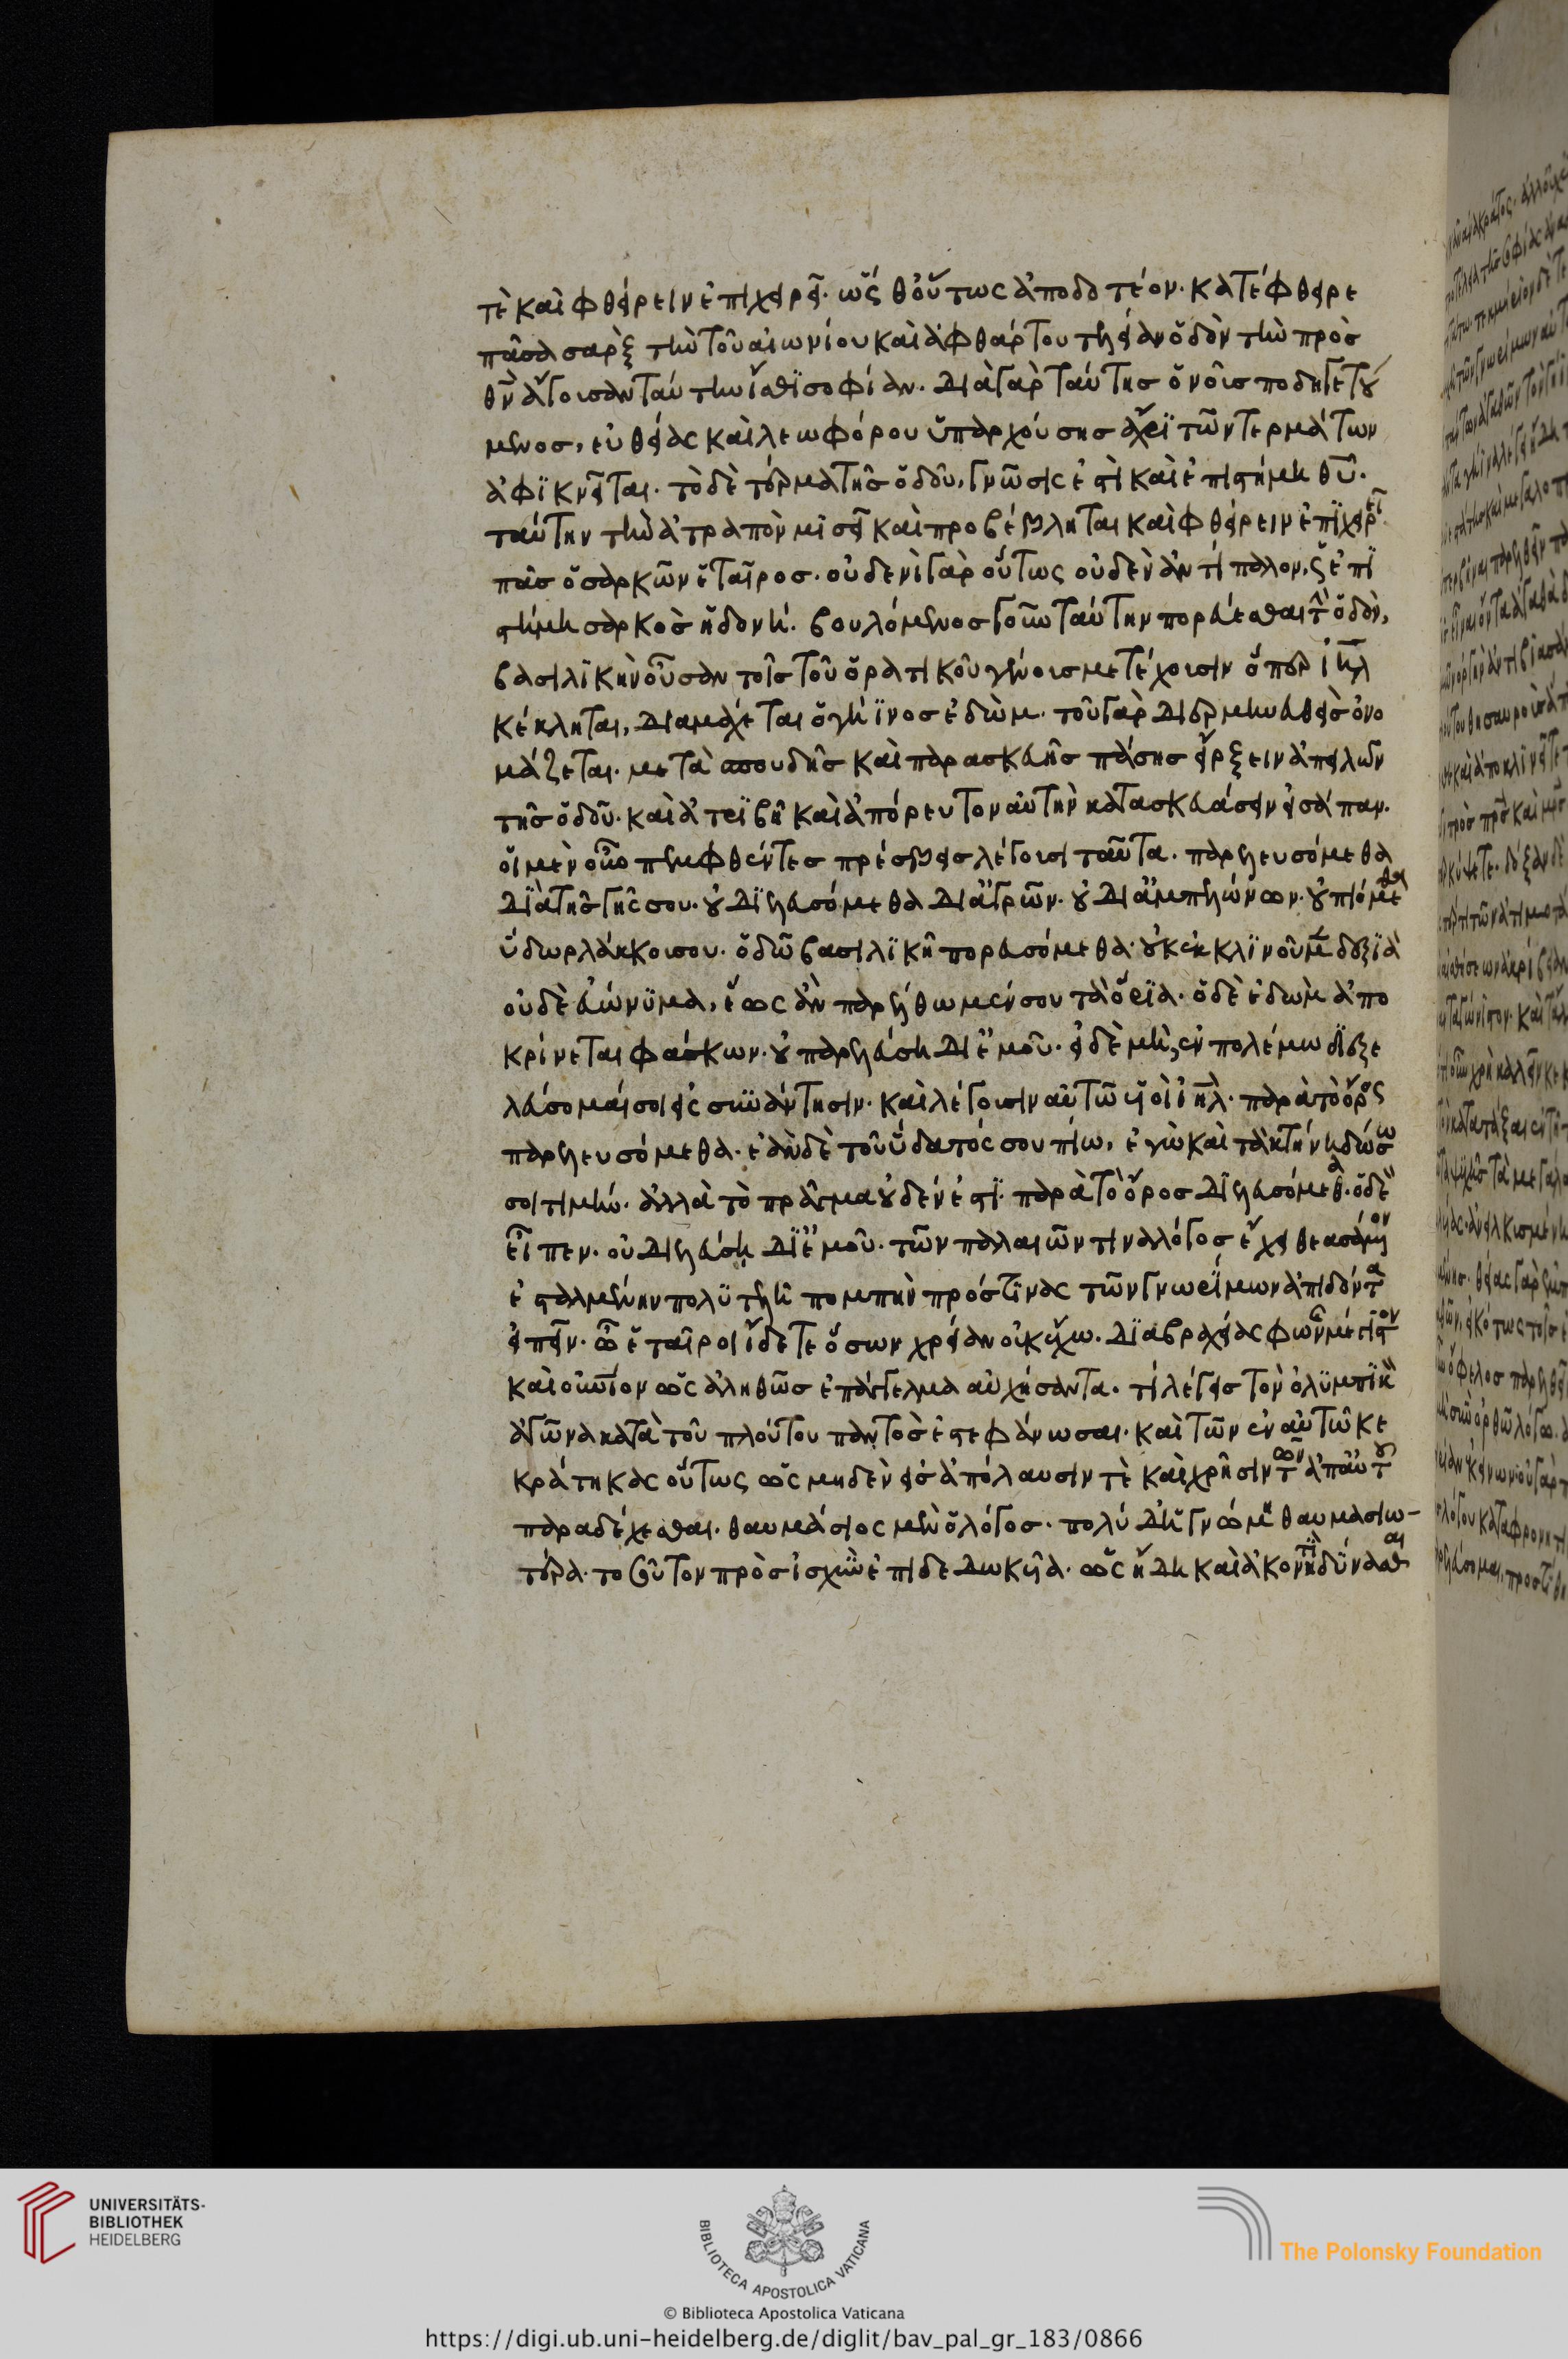 τὲ καὶ φθείρειν ἐπιχειρεῖ· ὥσθ' οὕτως ἀποδοτέον· κατέφθειρε
πᾶσα σὰρξ τὴν τοῦ αἰωνίου καὶ ἀφθάρτου τελείαν ὁδὸν τὴν πρὸς
θν̅ ἄγουσαν ταύτην ἴσθι σοφίαν. διὰ γὰρ ταύτης ὁ νοῦς ποδηγετού
μενος, εὐθείας καὶ λεωφόρου ὑπαρχούσης ἄχρι τῶν τερμάτων
ἀφικνεῖται. τὸ δὲ τέρμα τῆς ὁδοῦ, γνῶσίς ἐστι καὶ ἐπιστήμη θυ̅.
ταύτην τὴν ἀτραπὸν μισεῖ καὶ προβέβληται καὶ φθείρειν ἐπιχειρεῖ
πᾶς ὁ σαρκῶν ἑταῖρος. οὐδενὶ γὰρ οὕτως οὐδὲν ἀντίπαλον, ὡς ἐπι
στήμη σαρκὸς ἡδονή. βουλόμενος γοῦν ταύτην πορεύεσθαι τὴν ὁδὸν,
βασιλικὴν οὖσαν τοῖς τοῦ ὁρατικοῦ γένους μετέχουσιν ὅπερ ιη̅λ
κέκληται, διαμάχεται ὁ γήϊνος ἐδώμ. τοῦτο γὰρ διερμηνευθεὶς ὀνο
μάζεται. μετὰ σπουδῆς καὶ παρασκευῆς πάσης εἴρξειν ἀπειλῶν
τῆς ὁδοῦ. καὶ ἀτριβῆ καὶ ἀπόρευτον αὐτὴν κατασκευάσειν εἰσάπαν.
οἱ μὲν οὖν πεμφθέντες πρέσβεις λέγουσι ταῦτα. παρελευσόμεθα
διὰ τῆς γῆς σου. οὐ διελευσόμεθα δι' ἀγρῶν. οὐ δι' ἀμπελώνων. οὐ πιόμεθα
ὕδωρ λάκκου σου. ὁδῷ βασιλικῇ πορευσόμεθα. οὐκ ἐκκλινοῦμεν δεξιὰ
οὐδὲ εὐώνυμα, ἕως ἂν παρέλθωμέν σου τὰ ὅρια. ὁ δὲ ἐδὼμ ἀπο
κρίνεται φάσκων. οὐ παρελεύσῃ δι' ἐμοῦ. εἰ δὲ μὴ, ἐν πολέμῳ ἐξε
λεύσομαί σοι εἰς συνάντησιν. καὶ λέγουσιν αὐτῷ οἱ υἱοὶ ιη̅λ. παρὰ τὸ ὄρος
παρελευσόμεθα. ἐὰν δὲ τοῦ ὕδατός σου πίω, ἐγὼ καὶ τὰ κτήνη δώσω
σοι τιμήν. ἀλλὰ τὸ πρᾶγμα οὐδέν ἐστι. παρὰ τὸ ὄρος διελευσόμεθα. ὁ δὲ
εἶπεν. οὐ διελεύσῃ δι' ἐμοῦ. τῶν παλαιῶν τινα λόγος ἔχει θεασάμενον
ἐσταλμένην πολυτελῆ πομπὴν πρός τινας τῶν γνωρίμων ἀπιδόντα
εἰπεῖν. ὦ ἑταῖροι ἴδετε ὅσων χρείαν οὐκ ἔχω. διὰ βραχείας φωνῆς μέγιστον
καὶ οὐράνιον ὡς ἀληθῶς ἐπάγγελμα αὐχήσαντα. τί λέγεις τὸν ὀλυμπικὸν
ἀγῶνα κατὰ τοῦ πλούτου παντὸς ἐστεφάνωσαι. καὶ τῶν ἐν αὐτῷ κε
κράτηκας οὕτως ὡς μηδὲν εἰς ἀπόλαυσίν τε καὶ χρῆσιν τῶν ἀπ' αὐτοῦ
παραδέχεσθαι. θαυμάσιος μὲν ὁ λόγος. πολὺ δὲ ἡ γνώμη θαυμασιω-
τέρα. τοσοῦτον πρὸς ἰσχὺν ἐπιδεδωκυῖα. ὡς ἤδη καὶ ἀκονιτὶ δύνασθαι
UNIVERSITÄTS-
BIBLIOTHEK
HEIDELBERG
BIBLIOTECA APOSTOLICA VATICANA
The Polonsky Foundation
© Biblioteca Apostolica Vaticana
https://digi.ub.uni-heidelberg.de/diglit/bav_pal_gr_183/0866